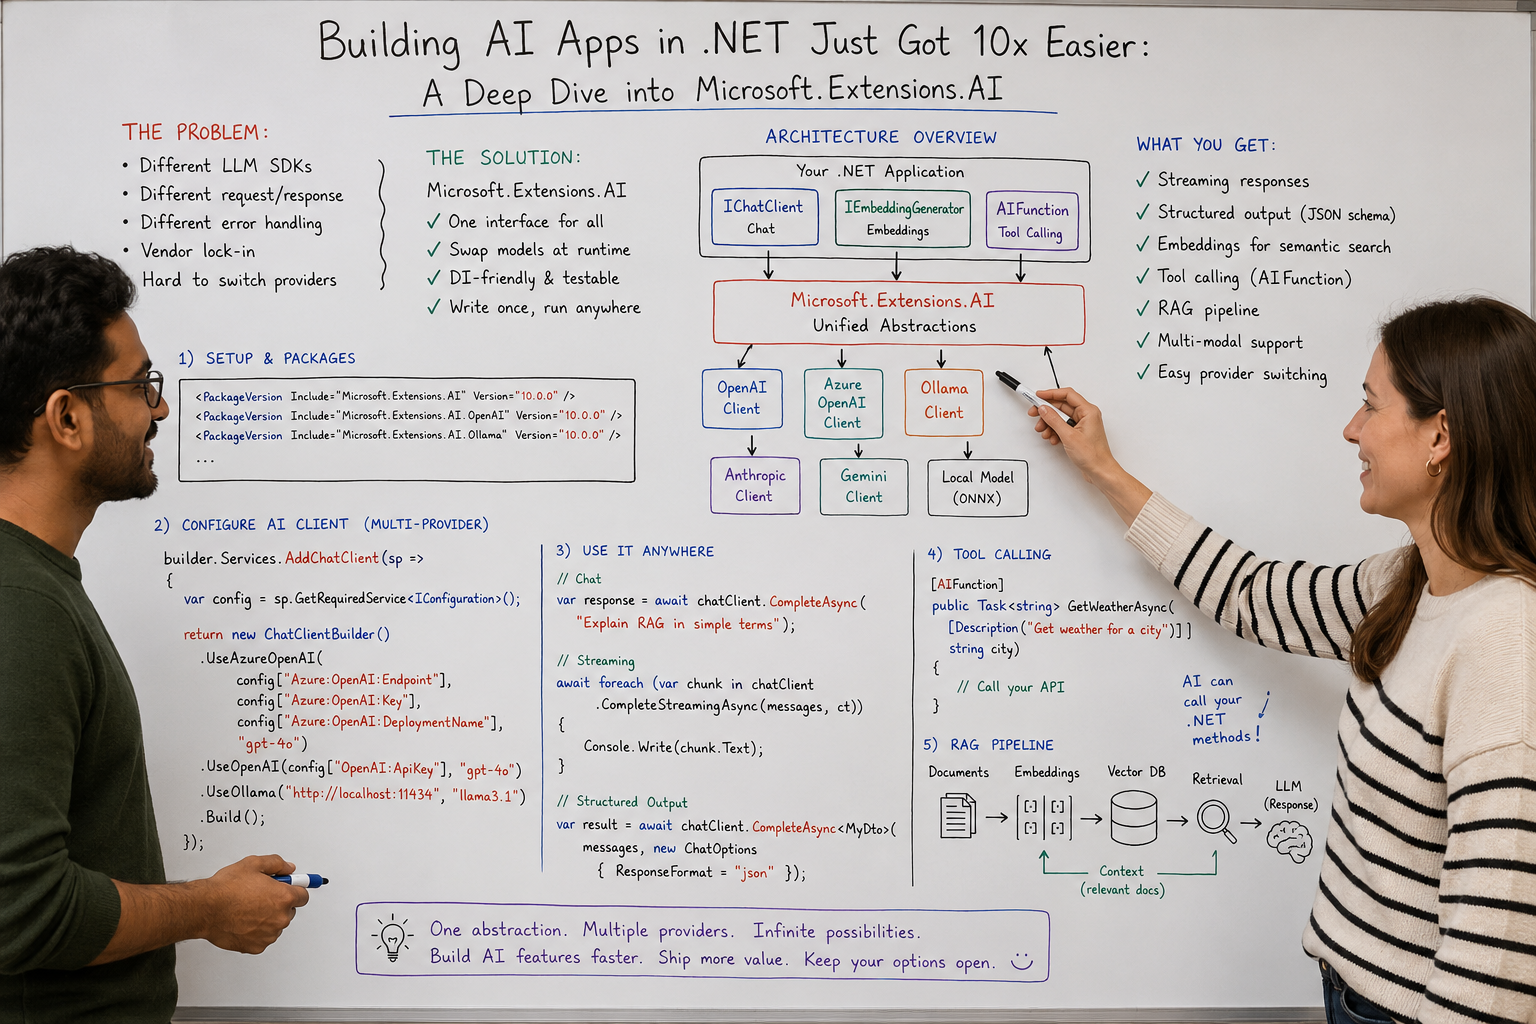 Building AI Apps in .NET Just Got 10x Easier:
A Deep Dive into Microsoft.Extensions.AI
THE PROBLEM:
• Different LLM SDKs
• Different request/response
• Different error handling
• Vendor lock-in
Hard to switch providers
THE SOLUTION:
Microsoft.Extensions.AI
✓ One interface for all
✓ Swap models at runtime
✓ DI-friendly & testable
✓ Write once, run anywhere
ARCHITECTURE OVERVIEW
Your .NET Application
IChatClient
Chat
IEmbeddingGenerator
Embeddings
AIFunction
Tool Calling
Microsoft.Extensions.AI
Unified Abstractions
OpenAI
Client
Azure
OpenAI
Client
Ollama
Client
Anthropic
Client
Gemini
Client
Local Model
(ONNX)
WHAT YOU GET:
✓ Streaming responses
✓ Structured output (JSON schema)
✓ Embeddings for semantic search
✓ Tool calling (AIFunction)
✓ RAG pipeline
✓ Multi-modal support
✓ Easy provider switching
1) SETUP & PACKAGES
<PackageVersion Include="Microsoft.Extensions.AI" Version="10.0.0" />
<PackageVersion Include="Microsoft.Extensions.AI.OpenAI" Version="10.0.0" />
<PackageVersion Include="Microsoft.Extensions.AI.Ollama" Version="10.0.0" />
...
2) CONFIGURE AI CLIENT (MULTI-PROVIDER)
builder.Services.AddChatClient(sp =>
{
var config = sp.GetRequiredService<IConfiguration>();
return new ChatClientBuilder()
.UseAzureOpenAI(
config["Azure:OpenAI:Endpoint"],
config["Azure:OpenAI:Key"],
config["Azure:OpenAI:DeploymentName"],
"gpt-4o")
.UseOpenAI(config["OpenAI:ApiKey"], "gpt-4o")
.UseOllama("http://localhost:11434", "llama3.1")
.Build();
});
3) USE IT ANYWHERE
// Chat
var response = await chatClient.CompleteAsync(
"Explain RAG in simple terms");
// Streaming
await foreach (var chunk in chatClient
.CompleteStreamingAsync(messages, ct))
{
Console.Write(chunk.Text);
}
// Structured Output
var result = await chatClient.CompleteAsync<MyDto>(
messages, new ChatOptions
{ ResponseFormat = "json" });
4) TOOL CALLING
[AIFunction]
public Task<string> GetWeatherAsync(
[Description("Get weather for a city")] ]
string city)
{
// Call your API
}
AI can
call your
.NET
methods!
5) RAG PIPELINE
Documents
Embeddings
Vector DB
Retrieval
LLM
(Response)
Context
(relevant docs)
One abstraction. Multiple providers. Infinite possibilities.
Build AI features faster. Ship more value. Keep your options open.